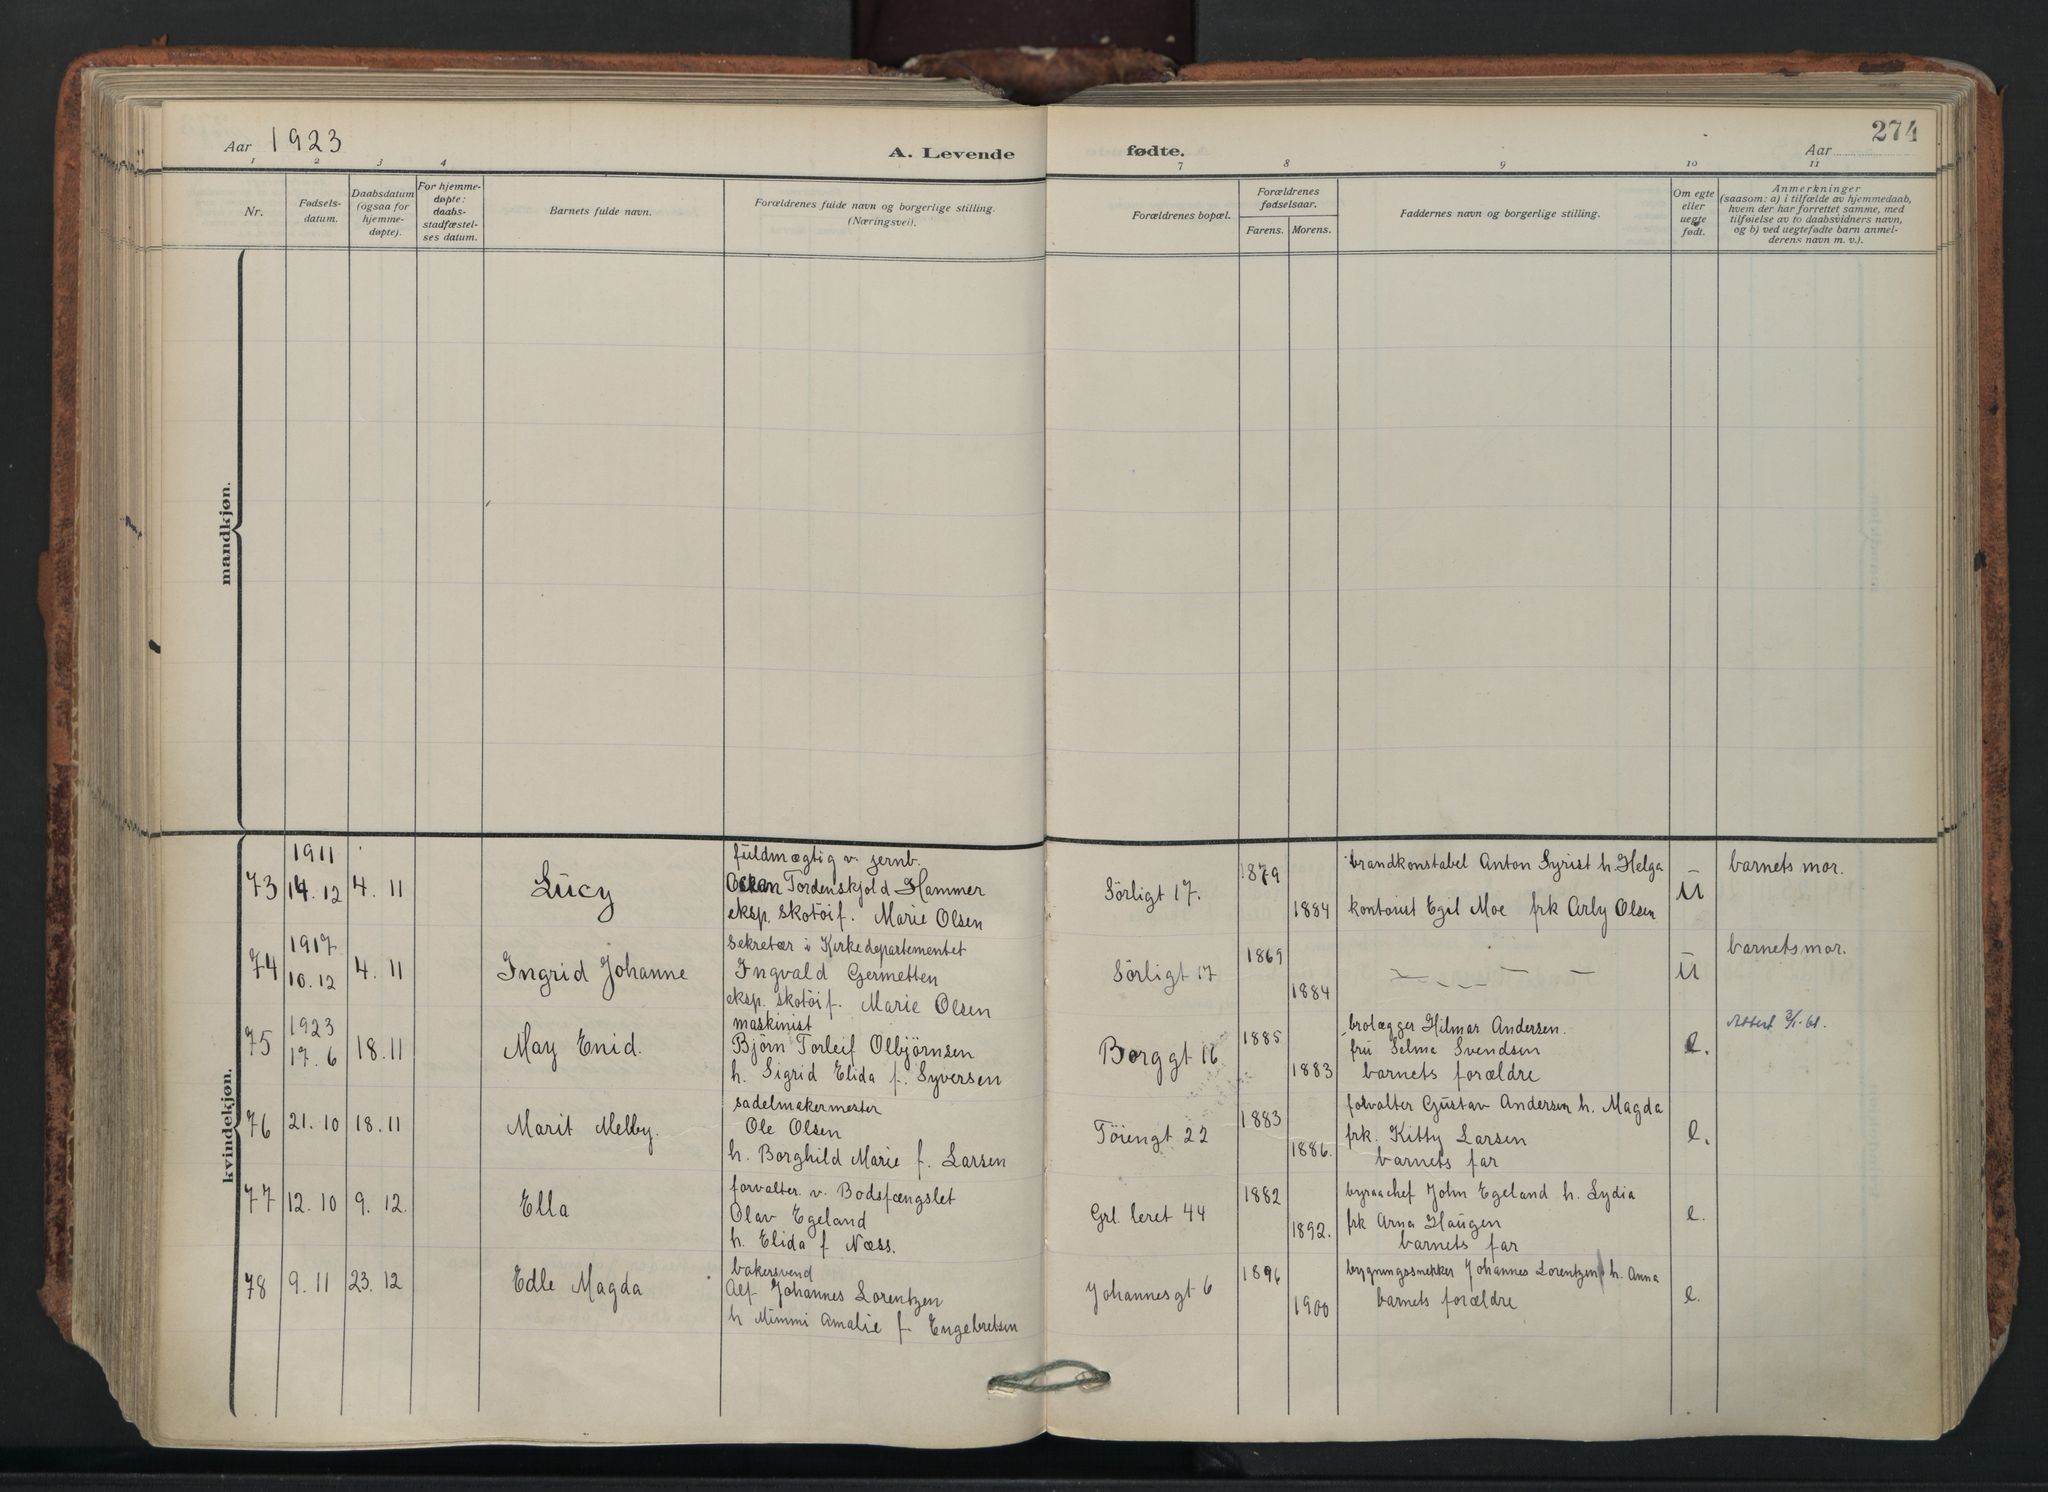 Aar 1923
A. Levende fødte.
274
Aar
1 2 3 4 7 8 9 10 11
Nr.
Fødsels-
datum.
Daabsdatum
(ogsaa for
hjemme-
døpte).
For hjemme-
døpte:
daabs-
stadfæstel-
ses datum.
Barnets fulde navn.
Forældrenes fulde navn og borgerlige stilling.
(Næringsvei).
Forældrenes bopæl.
Forældrenes
fødselsaar.
Farens. Morens.
Faddernes navn og borgerlige stilling.
Om egte
eller
uegte
født.
Anmerkninger
(saasom: a) i tilfælde av hjemmedaab,
hvem der har forrettet samme, med
tilføielse av to daabsvidners navn,
og b) ved uegtefødte barn anmel-
derens navn m. v.).
mandkjøn.
kvindekjøn.
73
1911
14. 12
4. 11
Lucy
fuldmægtig v. jernb.
Oskar Tordenskjold Hammer
eksp. skotöif. Marie Olsen
Sörligt 17.
1879
1884
brandkonstabel Anton Syrist h. Helga
kontorist Egil Moe frk Arly Olsen
u
barnets mor.
74
1917
10. 12
4. 11
Ingrid Johanne
sekretær i Kirkedepartementet
Ingvald Germetten
eksp. skotöif. Marie Olsen
Sörligt 17
1869
1884
— " — — —
u
barnets mor.
75
1923
17. 6
18. 11
May Enid.
maskinist
Bjørn Torleif Olbjörnsen
h. Sigrid Elida f. Syversen
Borggt 16
1885
1883
brolægger Hilmar Andersen.
fru Selma Svendsen
barnets forældre
e.
Attest 3/1-61.
76
21. 10
18. 11
Marit Melby.
sadelmakermester
Ole Olsen
h. Borghild Marie f. Larsen
Töiengt 22
1883
1886.
forvalter Gustav Andersen h. Magda
frk. Kitty Larsen
barnets far
e.
77
12. 10
9. 12.
Ella
forvalter v. Bodsfængslet
Olav Egeland
h. Elida f Næss.
Grl. leret 44
1882
1892.
byraachef John Egeland h. Lydia
frk Arna Haugen
barnets far
e.
78
9. 11
23. 12
Edle Magda
bakersvend
Alf Johannes Lorentzen
h Mimmi Amalie f. Engebretsen
Johannesgt 6
1896
1900
bygningssnekker Johannes Lorentzen h. Anna
barnets forældre
e.